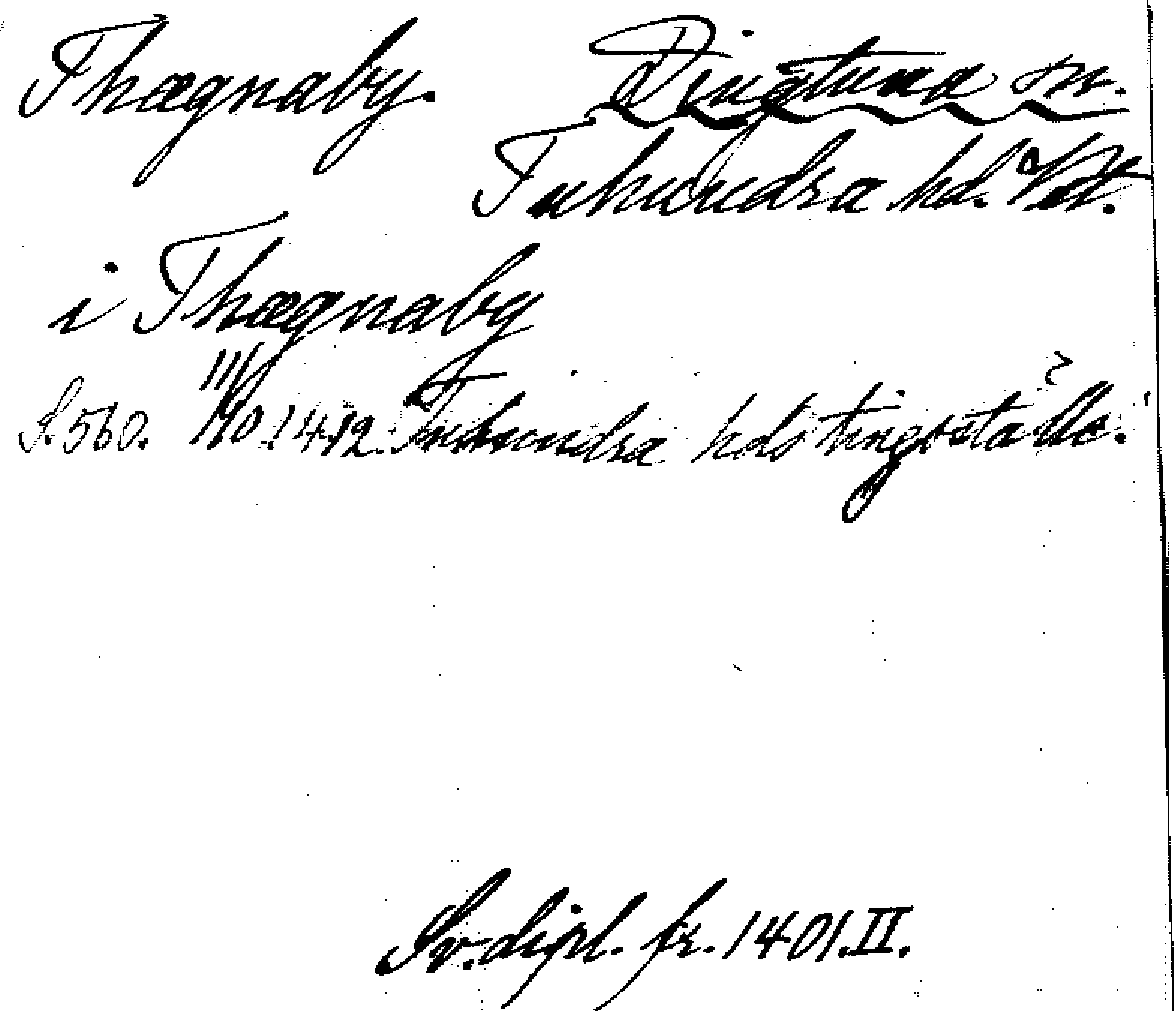 Thægnaby. Dingtuna sn.
Tuhundra hd. Vstm.
i Thægnaby
S. 560. 11/10 1412. Tuhundra hds tingställe.
Sv. dipl. fr. 1401. II.